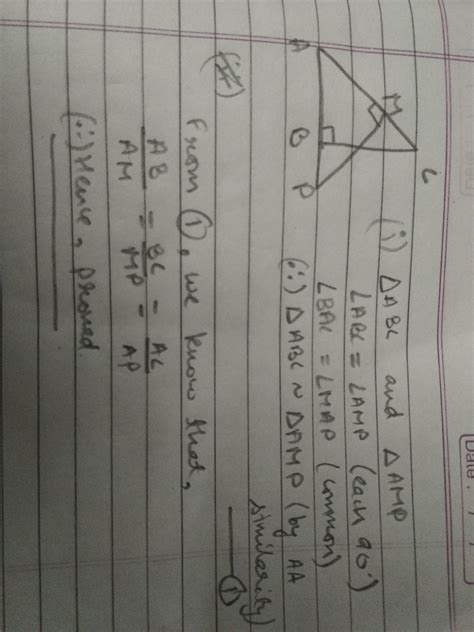 Date :
A
M
C
B
P
(i) △ABC and △AMP
∠ABC = ∠AMP (each 90°)
∠BAC = ∠MAP (common)
(∴) △ABC ~ △AMP (by AA
similarity)
— ①
(ii)
From ①, we know that,
AB/AM = BC/MP = AC/AP
(∴) Hence, proved.